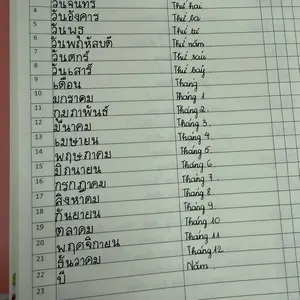 วันจันทร์ Thứ hai
4 วันอังคาร Thứ ba
5 วันพุธ Thứ tư
6 วันพฤหัสบดี Thứ năm
7 วันศุกร์ Thứ sáu
8 วันเสาร์ Thứ bảy
9 เดือน Tháng
10 มกราคม Tháng 1
11 กุมภาพันธ์ Tháng 2
12 มีนาคม Tháng 3
13 เมษายน Tháng 4
14 พฤษภาคม Tháng 5
15 มิถุนายน Tháng 6
16 กรกฎาคม Tháng 7
17 สิงหาคม Tháng 8
18 กันยายน Tháng 9
19 ตุลาคม Tháng 10
20 พฤศจิกายน Tháng 11
21 ธันวาคม Tháng 12
22 ปี Năm
23